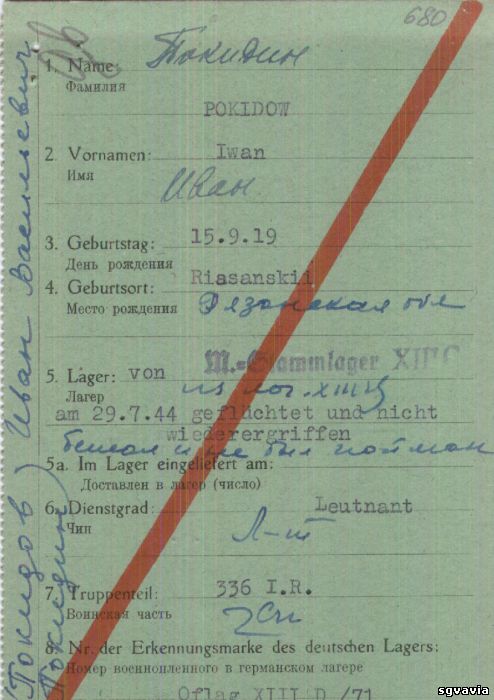 680
1. Name: Покидин
Фамилия
POKIDOW
2. Vornamen: Iwan
Имя
Иван
3. Geburtstag: 15.9.19
День рождения
4. Geburtsort: Riasanskij
Место рождения Рязанская обл
M.-Stammlager XIII C
5. Lager: von
Лагерь из лаг. XIII Ц
am 29.7.44 geflüchtet und nicht
wiederergriffen
бежал и не был пойман
5a. Im Lager eingeliefert am:
Доставлен в лагер (число)
6. Dienstgrad: Leutnant
Чин Л-т
7. Truppenteil: 336 I.R.
Воинская часть
8. Nr. der Erkennungsmarke des deutschen Lagers:
Номер военнопленного в германском лагере
Oflag XIII D /71
Покидов) Иван Васильевич
Покидин
sgvavia